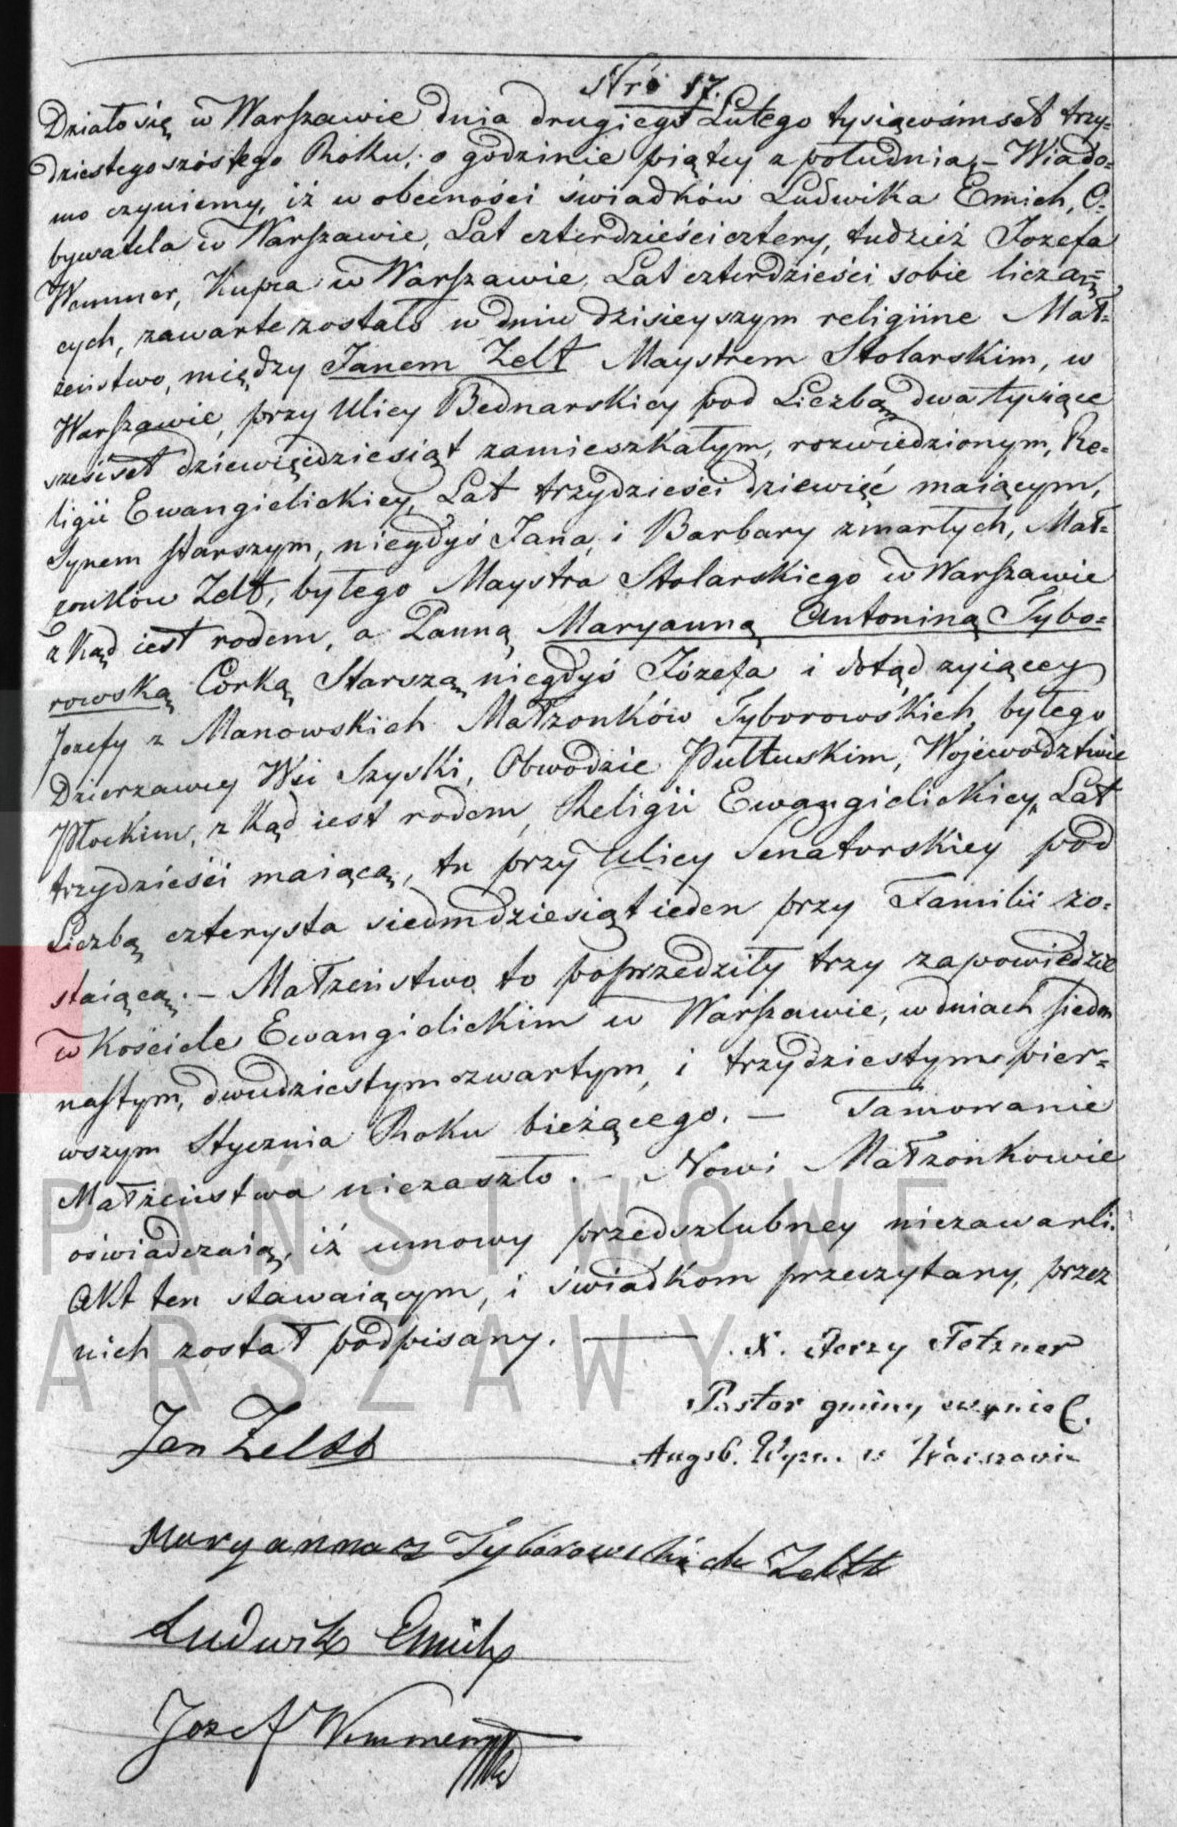 Nró 17.
Działo się w Warszawie dnia drugiego Lutego tysiącośmset trzy-
dziestego szóstego Roku, o godzinie piątey z południa, – Wiado-
mo czyniemy, iż w obecności świadków Ludwika Emich, O-
bywatela w Warszawie, Lat czterdzieści cztery, tudzież Jozefa
Wemmer, Kupca w Warszawie, Lat czterdzieści sobie liczą-
cych, zawarte zostało w dniu dzisieyszym religiine Mał-
żeństwo, między Janem Zelt Maystrem Stolarskim, w
Warszawie, przy Ulicy Bednarskiey pod Liczbą dwa tysiące
sześćset dziewięćdziesiąt zamieszkałym, rozwiedzionym, Re-
ligii Ewangielickiey, Lat trzydzieści dziewięć maiącym,
Synem starszym, niegdyś Jana, i Barbary zmarłych, Mał-
żonków Zelt, byłego Maystra Stolarskiego w Warszawie
z kąd iest rodem, a Panną Maryanną Antoniną Tybo-
rowską Córką Starszą, niegdyś Józefa i dotąd żyiącey
Jozefy z Manowskich Małżonków Tyborowskich, byłego
Dzierzawcy Wsi Szyski, Obwodzie Pułtuskim, Województwie
Płockim, z kąd iest rodem, Religii Ewangielickiey, Lat
trzydzieści maiącą, tu przy Ulicy Senatorskiey pod
Liczbą czterysta siedmdziesiąt ieden przy Familii zo-
staiącą. – Małżeństwo to poprzedziły trzy zapowiedzie
w Kościele Ewangielickim w Warszawie, w dniach siedm
nastym, dwudziestym czwartym, i trzydziestym pier-
wszym Stycznia Roku bieżącego. – Tamowanie
Małżeństwa niezaszło. – Nowi Małżonkowie
oświadczaią, iż umowy przedszlubney niezawarli.
Akt ten stawaiącym, i świadkom przeczytany, przez
nich został podpisany. –
X. Jerzy Tetzner
Pastor gminy ewaniel.
Augsb. Wyzn. w Warszawie
Jan Zeltt
Maryanna z Tyborowskich Zeltt
Ludwik Emich
Jozef Wemmer
PAŃSTWOWE
ARSZAWY